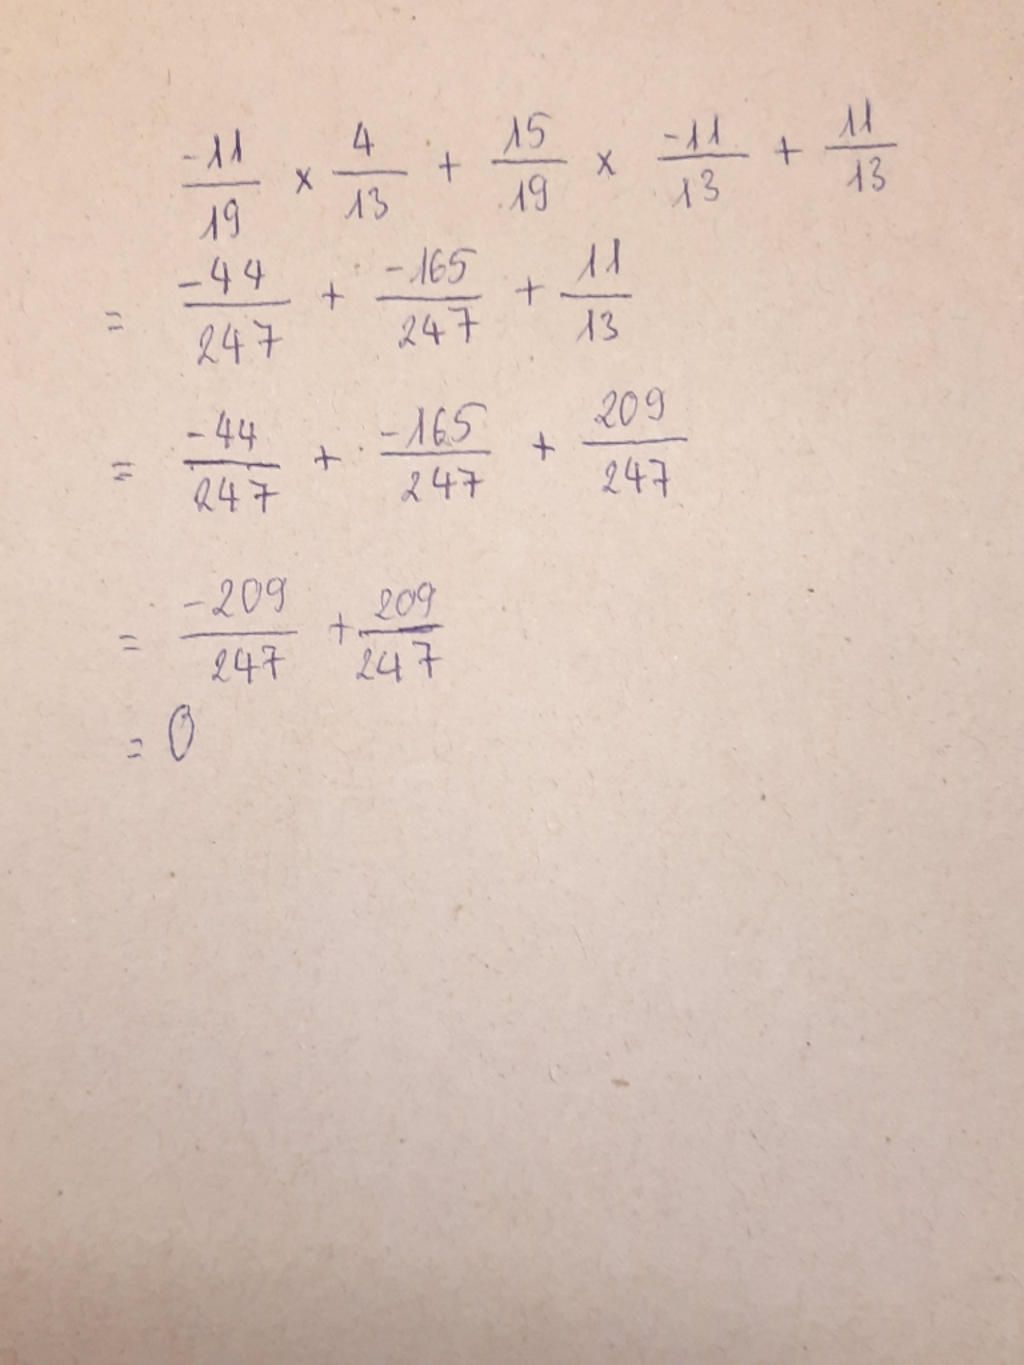 -11/19 × 4/13 + 15/19 × -11/13 + 11/13
= -44/247 + -165/247 + 11/13
= -44/247 + -165/247 + 209/247
= -209/247 + 209/247
= 0